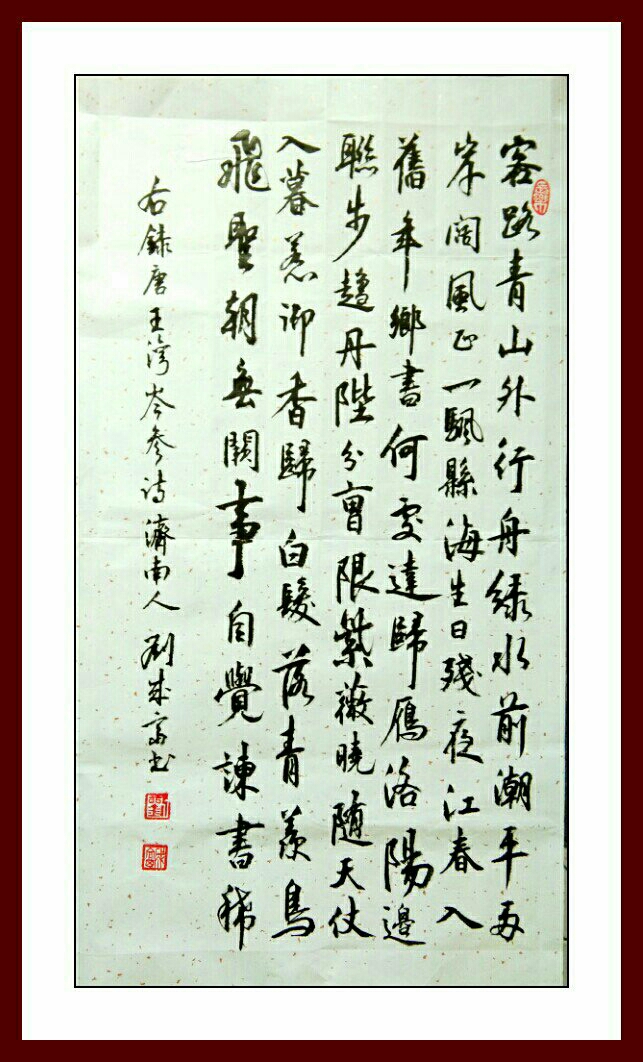 客路青山外行舟绿水前潮平两
岸阔風正一颿縣海生日殘夜江春入
舊年鄉書何处達歸雁洛陽邊
聯步趨丹陛分曹限紫薇曉隨天仗
入暮惹御香歸白髮落青羨鳥
飛聖朝無闕事自覺諫書稀
右錄唐王湾岑參诗濟南人刘成富书